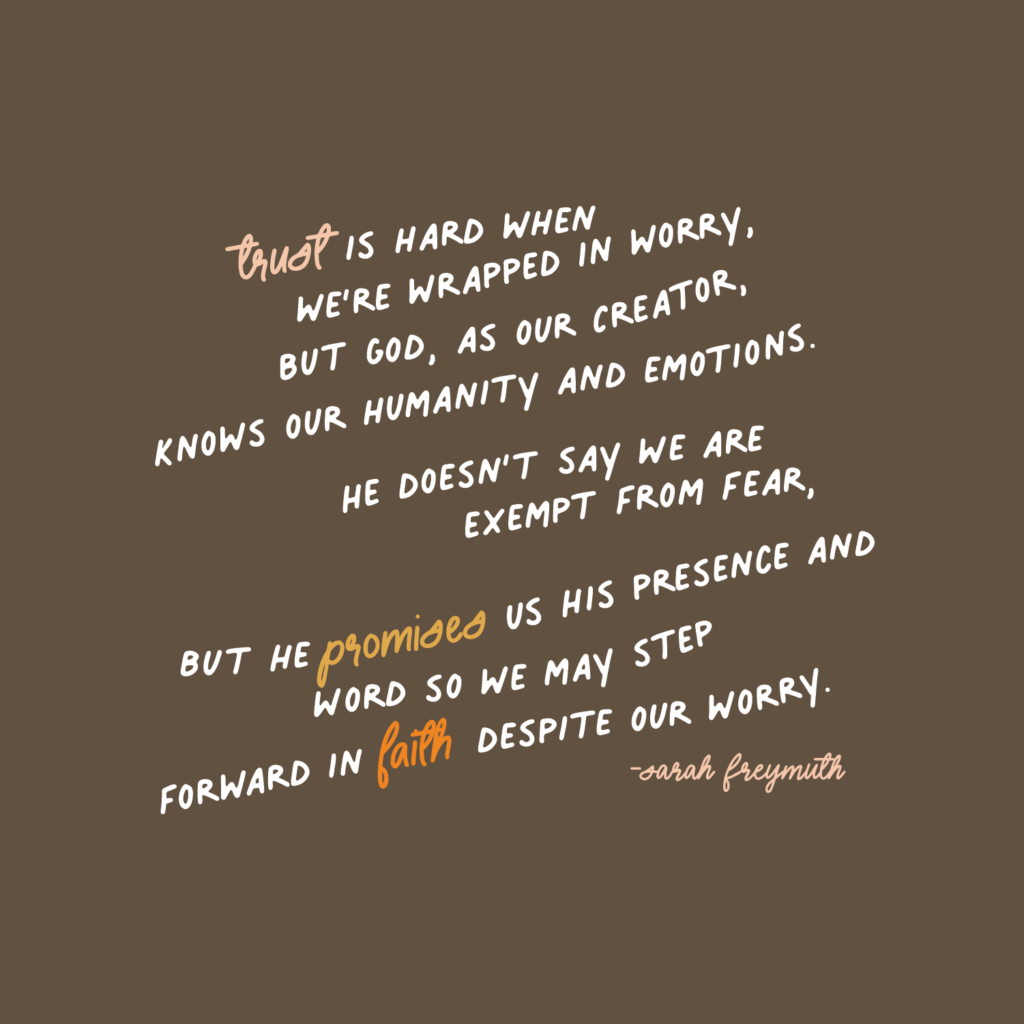 trust IS HARD WHEN
WE'RE WRAPPED IN WORRY,
BUT GOD, AS OUR CREATOR,
KNOWS OUR HUMANITY AND EMOTIONS.
HE DOESN'T SAY WE ARE
EXEMPT FROM FEAR,
BUT HE promises US HIS PRESENCE AND
WORD SO WE MAY STEP
FORWARD IN faith DESPITE OUR WORRY.
-sarah freymuth